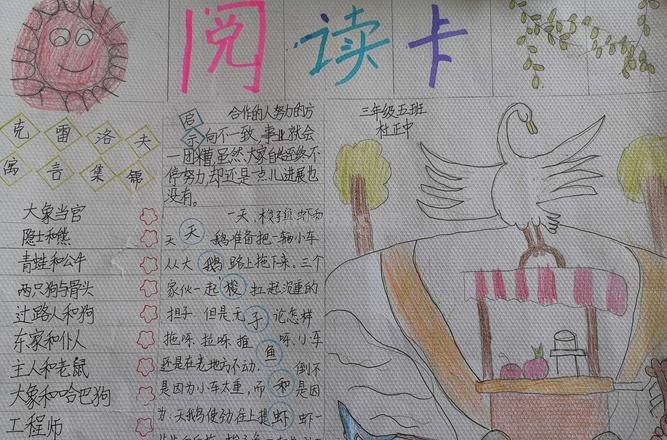 阅读卡
克雷洛夫
寓言集锦
大象当官
隐士和熊
青蛙和公牛
两只狗与骨头
过路人和狗
东家和仆人
主人和老鼠
大象和哈巴狗
工程师
启示
合作的人努力的方
向不一致,事业就会
一团糟,虽然大家自始至终不
停努力,却还是一点儿进展也
没有。
天鹅梭子鱼和虾
一天,梭子鱼、虾和
天鹅准备把一辆小车
从大路上拖下来,三个
家伙一起扛起沉重的
担子 但是无论怎样
拖呀、拉呀、推呀,小车
还是在老地方不动,倒不
是因为小车太重,而是因
为:天鹅使劲往上提,虾一
三年级五班
杜正中